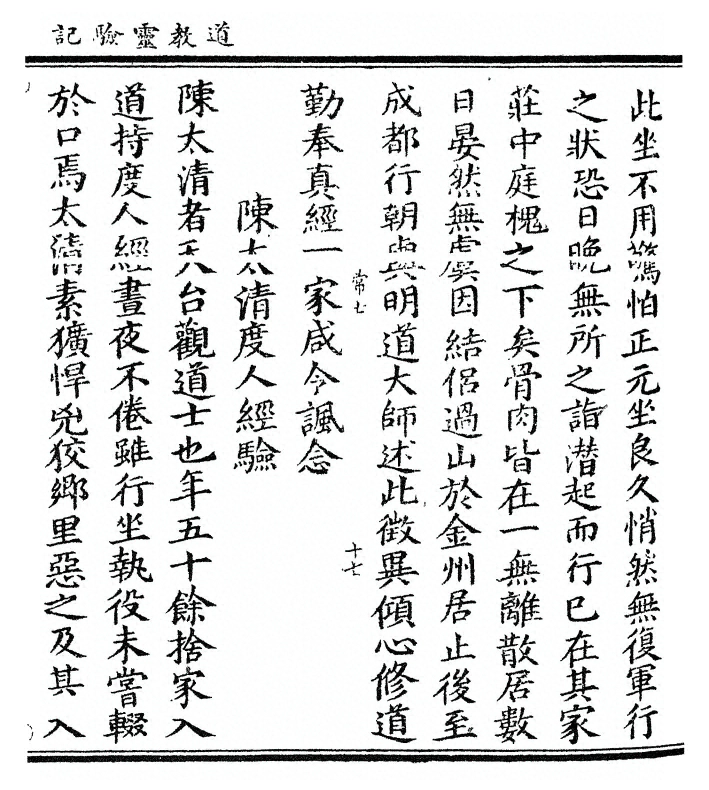 道教靈驗記
此坐不用驚怕正元坐良久悄然無復軍行
之狀恐日晚無所之詣潜起而行已在其家
莊中庭槐之下矣骨肉皆在一無離散居數
日晏然無虞因結侶過山於金州居止後至
成都行朝與明道大師述此徵異傾心修道
常七
十七
勤奉真經一家咸令諷念
陳太清度人經驗
陳太清者天台觀道士也年五十餘捨家入
道持度人經晝夜不倦雖行坐執役未嘗輟
於口焉太清素獷悍兇狡鄉里惡之及其入